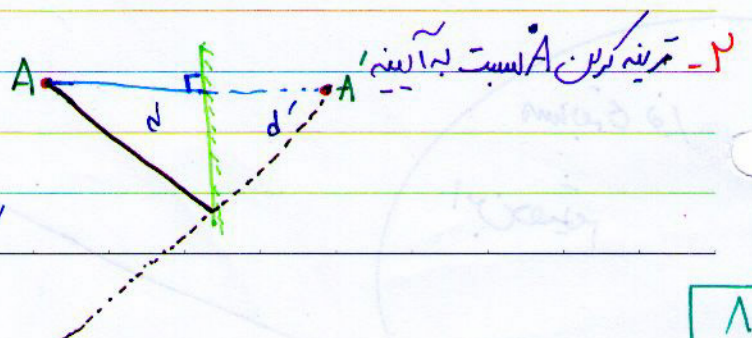 ۲- قرینه کردن A نسبت به آیینه
A A'
d d'
۸